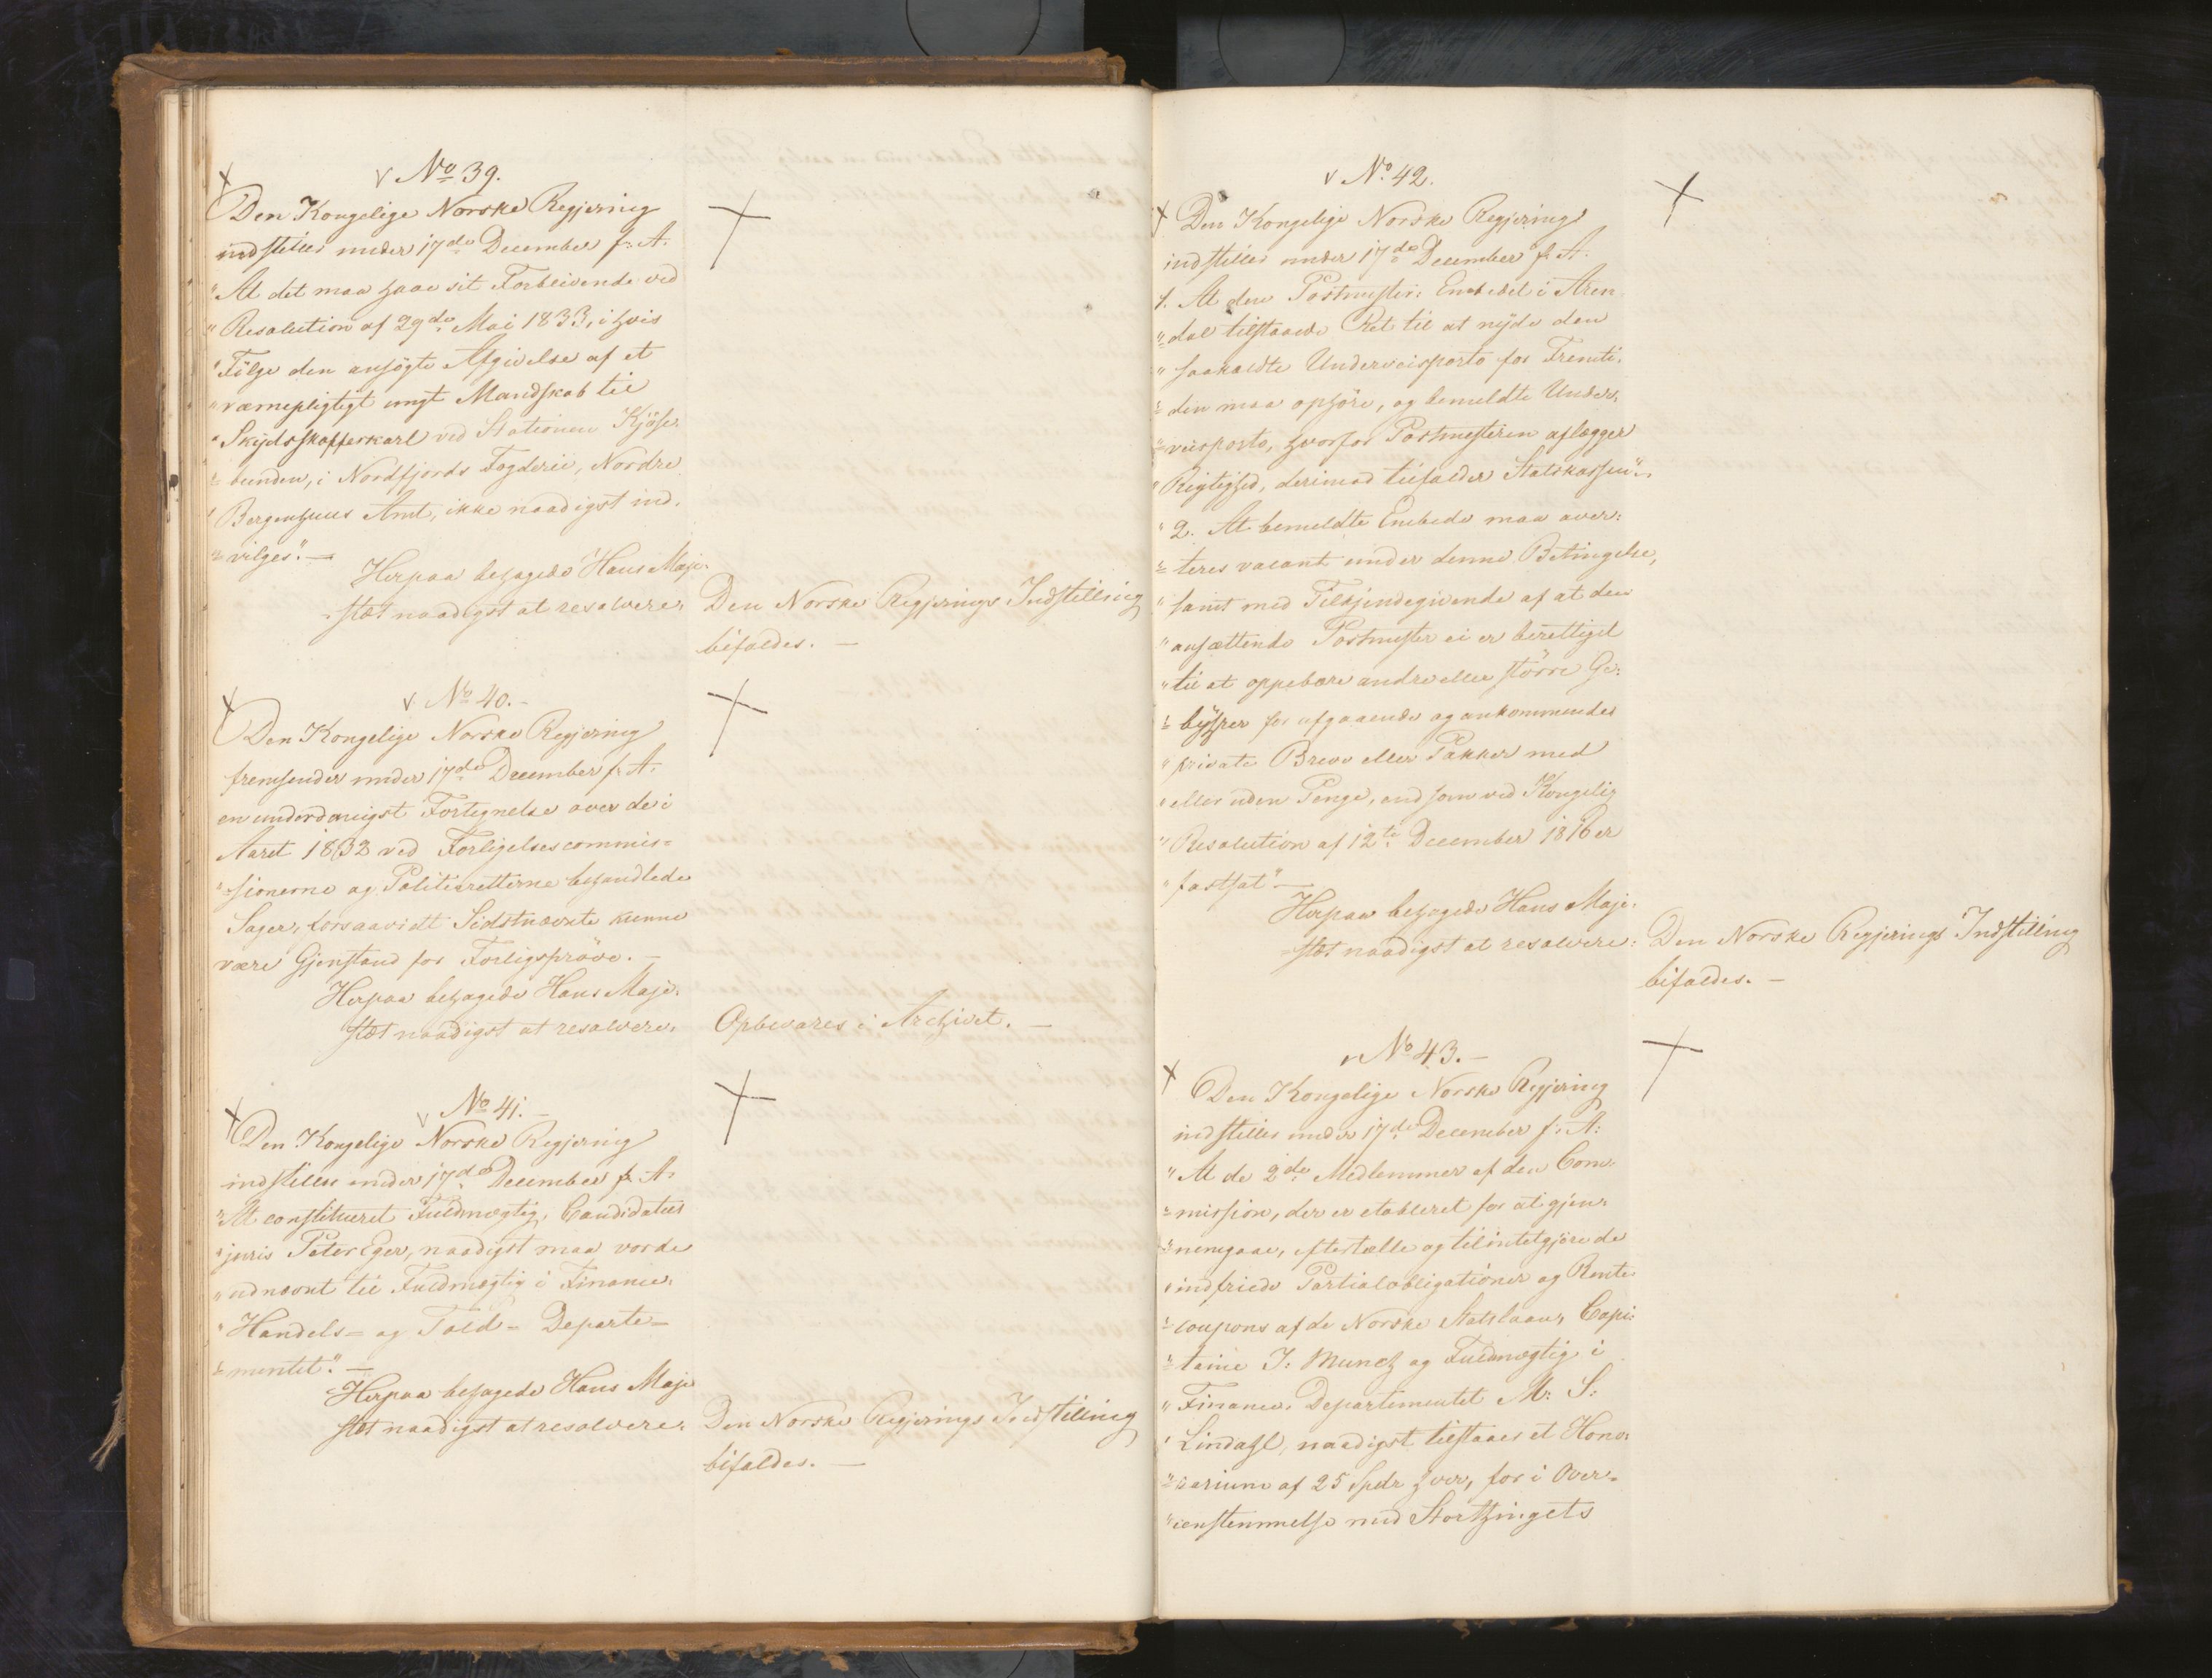 No 39.
Den Kongelige Norske Regjering
indstiller under 17de December f: A.
"At det maa have sit Forblivende ved
"Resolution af 29de Mai 1833, i hvis
"Følge den ansøgte Afgivelse af et
"værnepligtigt ungt Mandskab til
"Skydsskafferkarl ved Stationen Kjøse-
"bunden, i Nordfjords Fogderie, Nordre
"Bergenhuus Amt, ikke naadigst ind-
"vilges". —
Herpaa behagede Hans Maje-
stæt naadigst at resolvere:
Den Norske Regjerings Indstilling
bifaldes. —
No 40. -
Den Kongelige Norske Regjering
fremsender under 17de December f: A.
en underdanigst Fortegnelse over de i
Aaret 1832 ved Forligelsescommis=
sionerne og Politieretterne behandlede
Sager, forsaavidt Sidstnævnte kunne
være Gjenstand for Forligsprøve. —
Herpaa behagede Hans Maje-
stæt naadigst at resolvere:
Opbevares i Archivet. —
No 41. -
Den Kongelige Norske Regjering
indstiller under 17de December f: A.
"At constitueret Fuldmægtig, Candidatus
"juris Peter Eger, naadigst maa vorde
"udnævnt til Fuldmægtig i Finance-
"Handels= og Told= Departe=
"mentet". —
Herpaa behagede Hans Maje
stæt naadigst at resolvere:
Den Norske Regjerings Indstilling
bifaldes. —
No 42.
Den Kongelige Norske Regjering
indstiller under 17de December f: A.
1. At den Postmester: Embedet i Aren-
"dal tilstaaede Ret til at nyde den
"saakaldte Underveisporto for Fremti-
"den maa ophøre, og bemeldte Under-
"veisporto, hvorfor Postmesteren aflægger
"Rigtighed, derimod tilfalder Statskassen",
"2. At bemeldte Embede maa aver:
"teres vacant under denne Betingelse,
"samt med Tilkjendegivende af at den
"ansættende Postmester ei er berettiget
"til at oppebære andre eller større Ge:
"byhrer for afgaaende og ankommende
"private Breve eller Pakker med
"eller uden Penge, end som ved Kongelig
"Resolution af 12te December 1816 er
"fastsat" —
Herpaa behagede Hans Maje:
stæt naadigst at resolvere:
Den Norske Regjerings Indstilling
bifaldes. —
No 43. —
Den Kongelige Norske Regjering
indstiller under 17de December f: A:
"At de 2de Medlemmer af den Com-
"mission, der er etableret for at gjen-
"nemgaae, eftertælle og tilintetgjøre de
"indfriede Partialobligationer og Rente
"coupons af de Norske Statslaan, Capi:
"taine J: Munch og Fuldmægtig i
"Finance: Departementet M: S:
"Lindahl, naadigst tilstaaes et Hono:
"rarium af 25 Spdr hver, for i Over-
"eensstemmelse med Storthingets